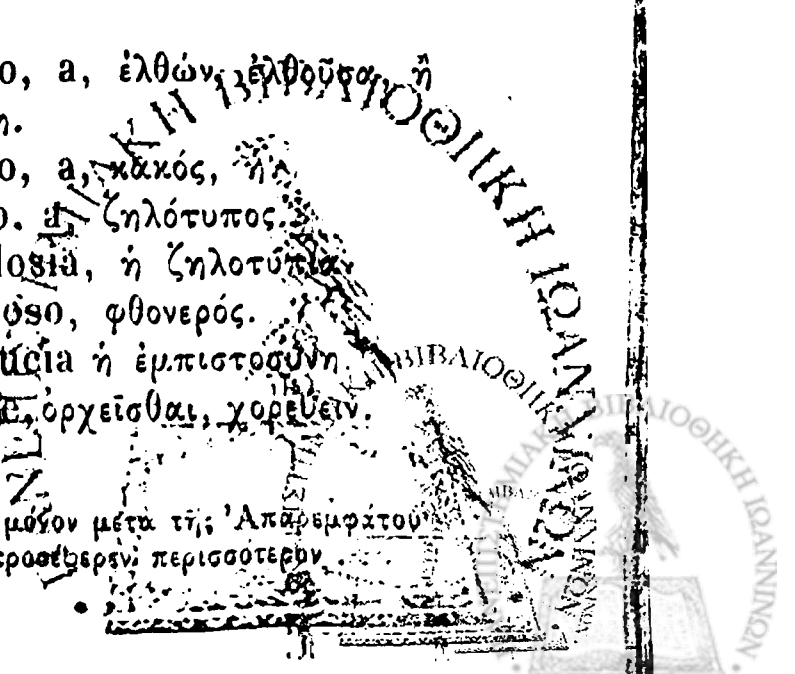 o, a, ἐλθών, ἐλθοῦσα, ἢ
η.
o, a, κακός, ἡ
o. a, ζηλότυπος.
losia, ἡ ζηλοτυπία.
oso, φθονερός.
ucia ἡ ἐμπιστοσύνη
e, ὀρχεῖσθαι, χορεύειν.
μόνον μετὰ τῆς Ἀπαρεμφάτου
περισσότερον
ΒΙΒΛΙΟΘΗΚΗ ΙΩΑΝΝΙΝΩΝ
ΒΙΒΛΙΟΘΗΚΗ
ΒΙΒΛΙΟΘΗΚΗ ΙΩΑΝΝΙΝΩΝ